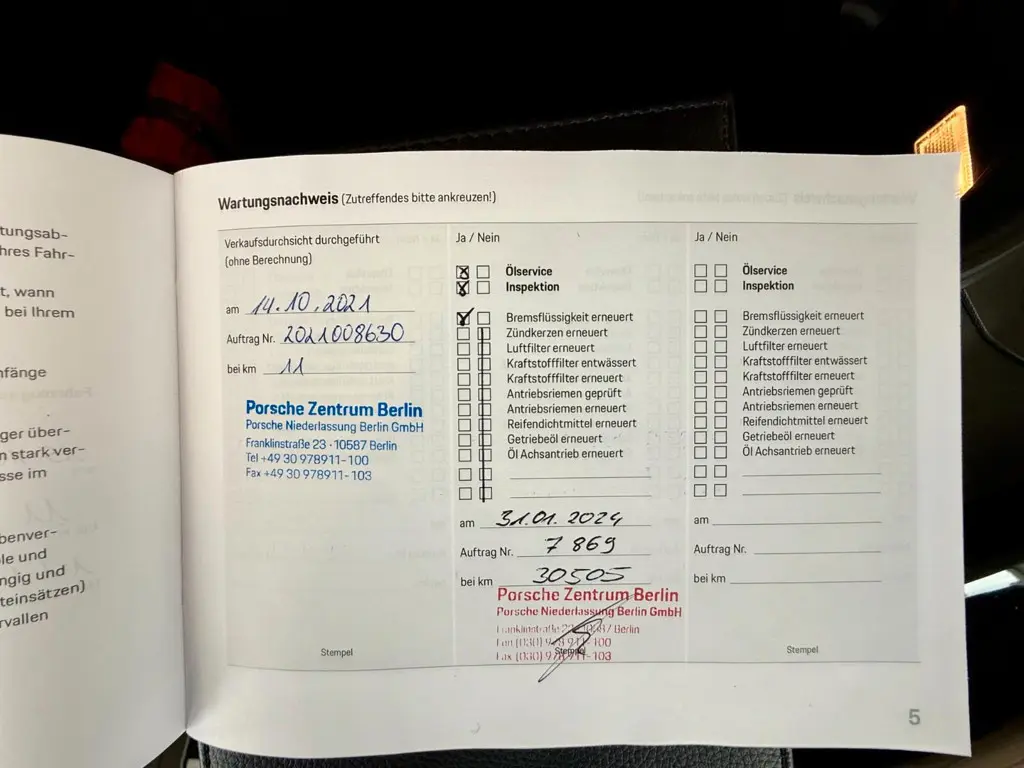 tungsab-
hres Fahr-
t, wann
bei Ihrem
nfänge
ger über-
n stark ver-
sse im
benver-
le und
ngig und
teinsätzen)
rvallen
Wartungsnachweis (Zutreffendes bitte ankreuzen!)
Verkaufsdurchsicht durchgeführt
(ohne Berechnung)
am 14.10.2021
Auftrag Nr. 2021008630
bei km 11
Porsche Zentrum Berlin
Porsche Niederlassung Berlin GmbH
Franklinstraße 23 · 10587 Berlin
Tel +49 30 978911-100
Fax +49 30 978911-103
Stempel
Ja / Nein
Ölservice
Inspektion
Bremsflüssigkeit erneuert
Zündkerzen erneuert
Luftfilter erneuert
Kraftstofffilter entwässert
Kraftstofffilter erneuert
Antriebsriemen geprüft
Antriebsriemen erneuert
Reifendichtmittel erneuert
Getriebeöl erneuert
Öl Achsantrieb erneuert
am 31.01.2024
Auftrag Nr. 7869
bei km 30505
Porsche Zentrum Berlin
Porsche Niederlassung Berlin GmbH
Berlin
(030) 100
Fax (030) 978911-103
Stempel
Ja / Nein
Ölservice
Inspektion
Bremsflüssigkeit erneuert
Zündkerzen erneuert
Luftfilter erneuert
Kraftstofffilter entwässert
Kraftstofffilter erneuert
Antriebsriemen geprüft
Antriebsriemen erneuert
Reifendichtmittel erneuert
Getriebeöl erneuert
Öl Achsantrieb erneuert
am
Auftrag Nr.
bei km
Stempel
5